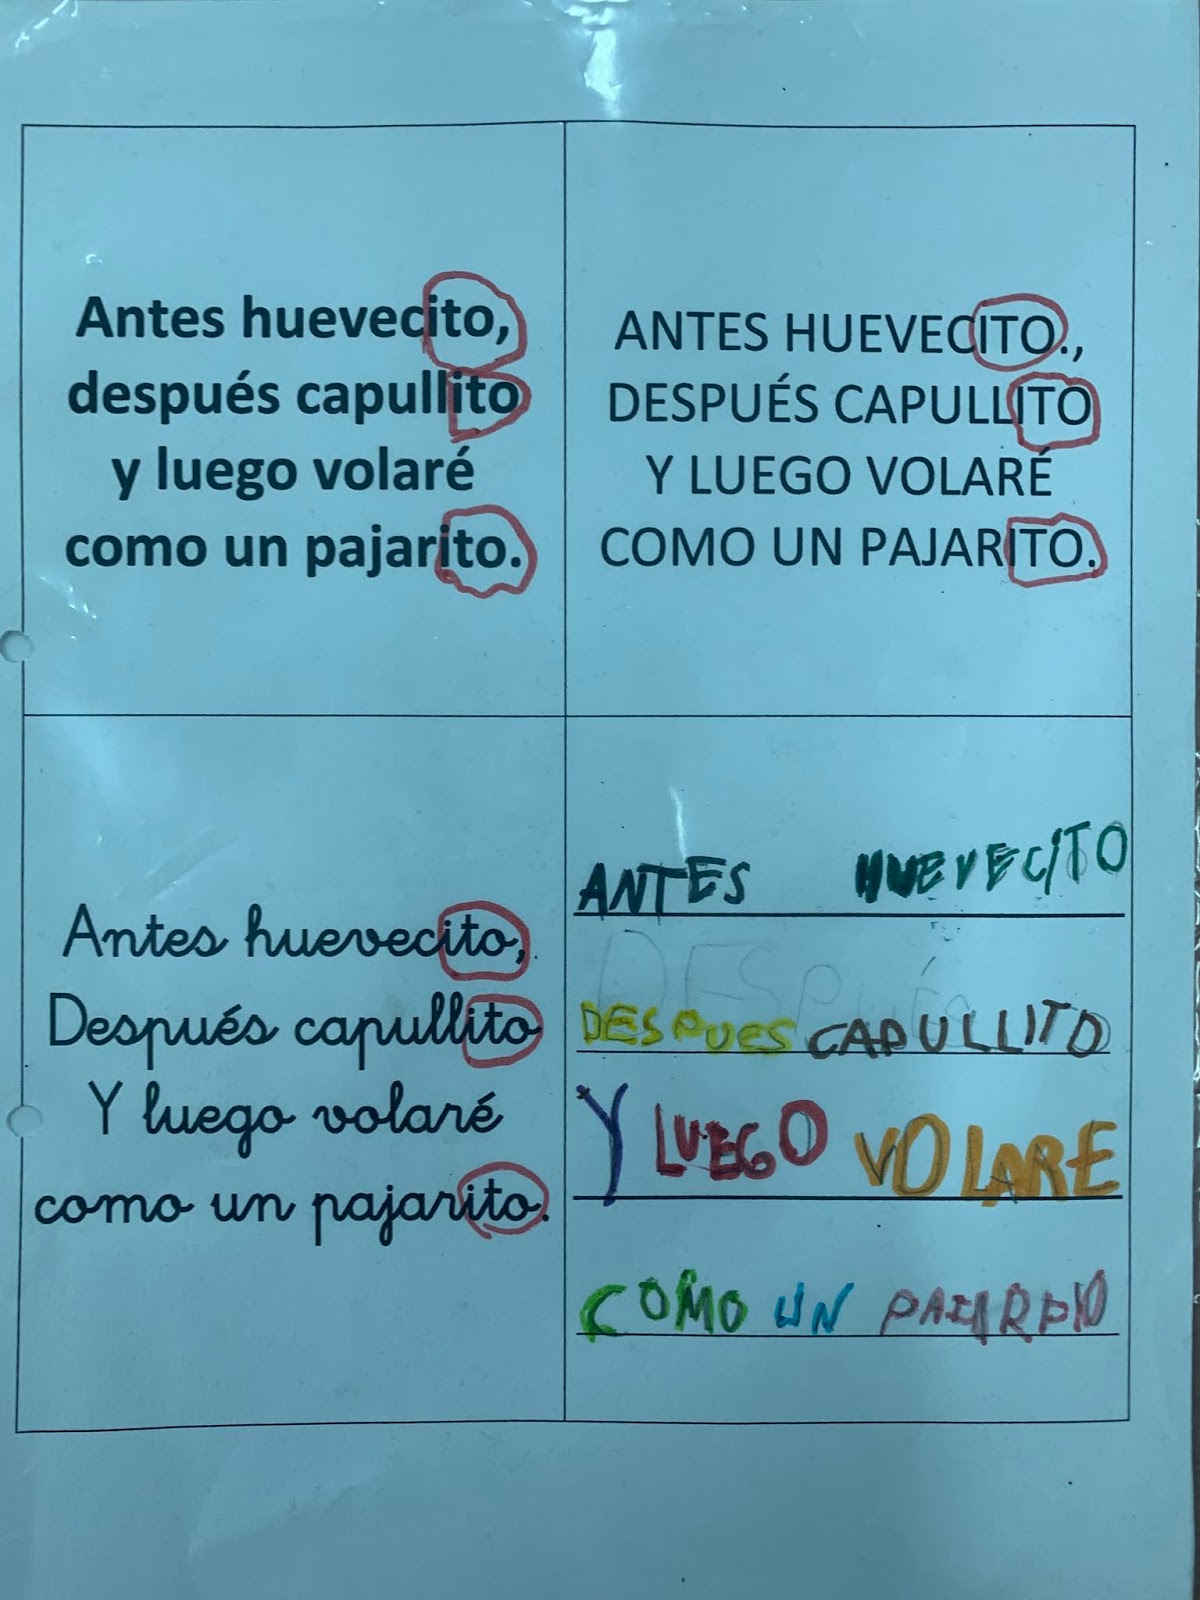 Antes huevecito,
después capullito
y luego volaré
como un pajarito.
ANTES HUEVECITO.,
DESPUÉS CAPULLITO
Y LUEGO VOLARÉ
COMO UN PAJARITO.
Antes huevecito,
Después capullito
Y luego volaré
como un pajarito.
ANTES HUEVECITO
DESPUES CAPULLITO
Y LUEGO VOLARE
COMO UN